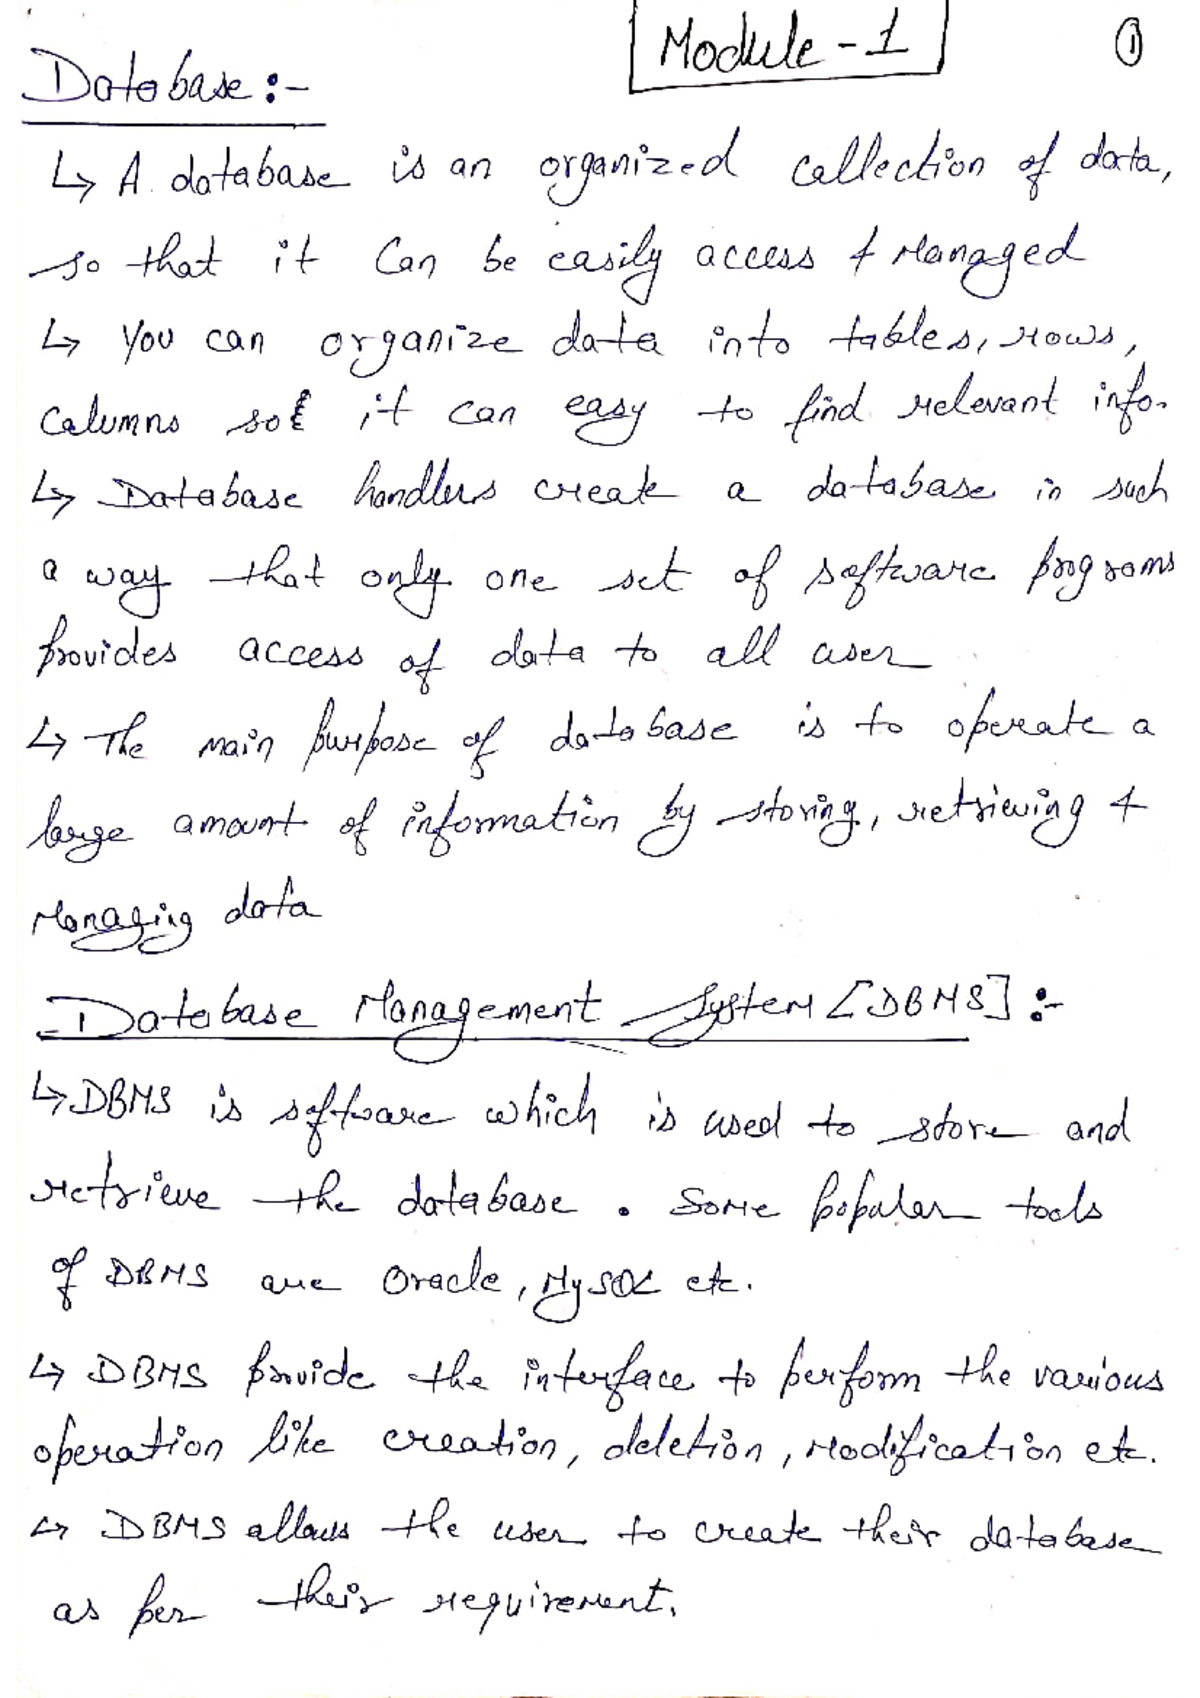 Module - 1
①
Database :-
↳ A database is an organized collection of data,
so that it Can be easily access & Managed
↳ You can organize data into tables, rows,
Columns so it can easy to find relevant info.
↳ Database handlers create a database in such
a way that only one set of software programs
provides access of data to all user
↳ The main purpose of database is to operate a
large amount of information by storing, retrieving &
Managing data
Database Management System [DBMS] :-
↳ DBMS is software which is used to store and
retrieve the database . Some popular tools
of DBMS are Oracle, MySQL etc.
↳ DBMS provide the interface to perform the various
operation like creation, deletion, Modification etc.
↳ DBMS allows the user to create their database
as per their requirement.